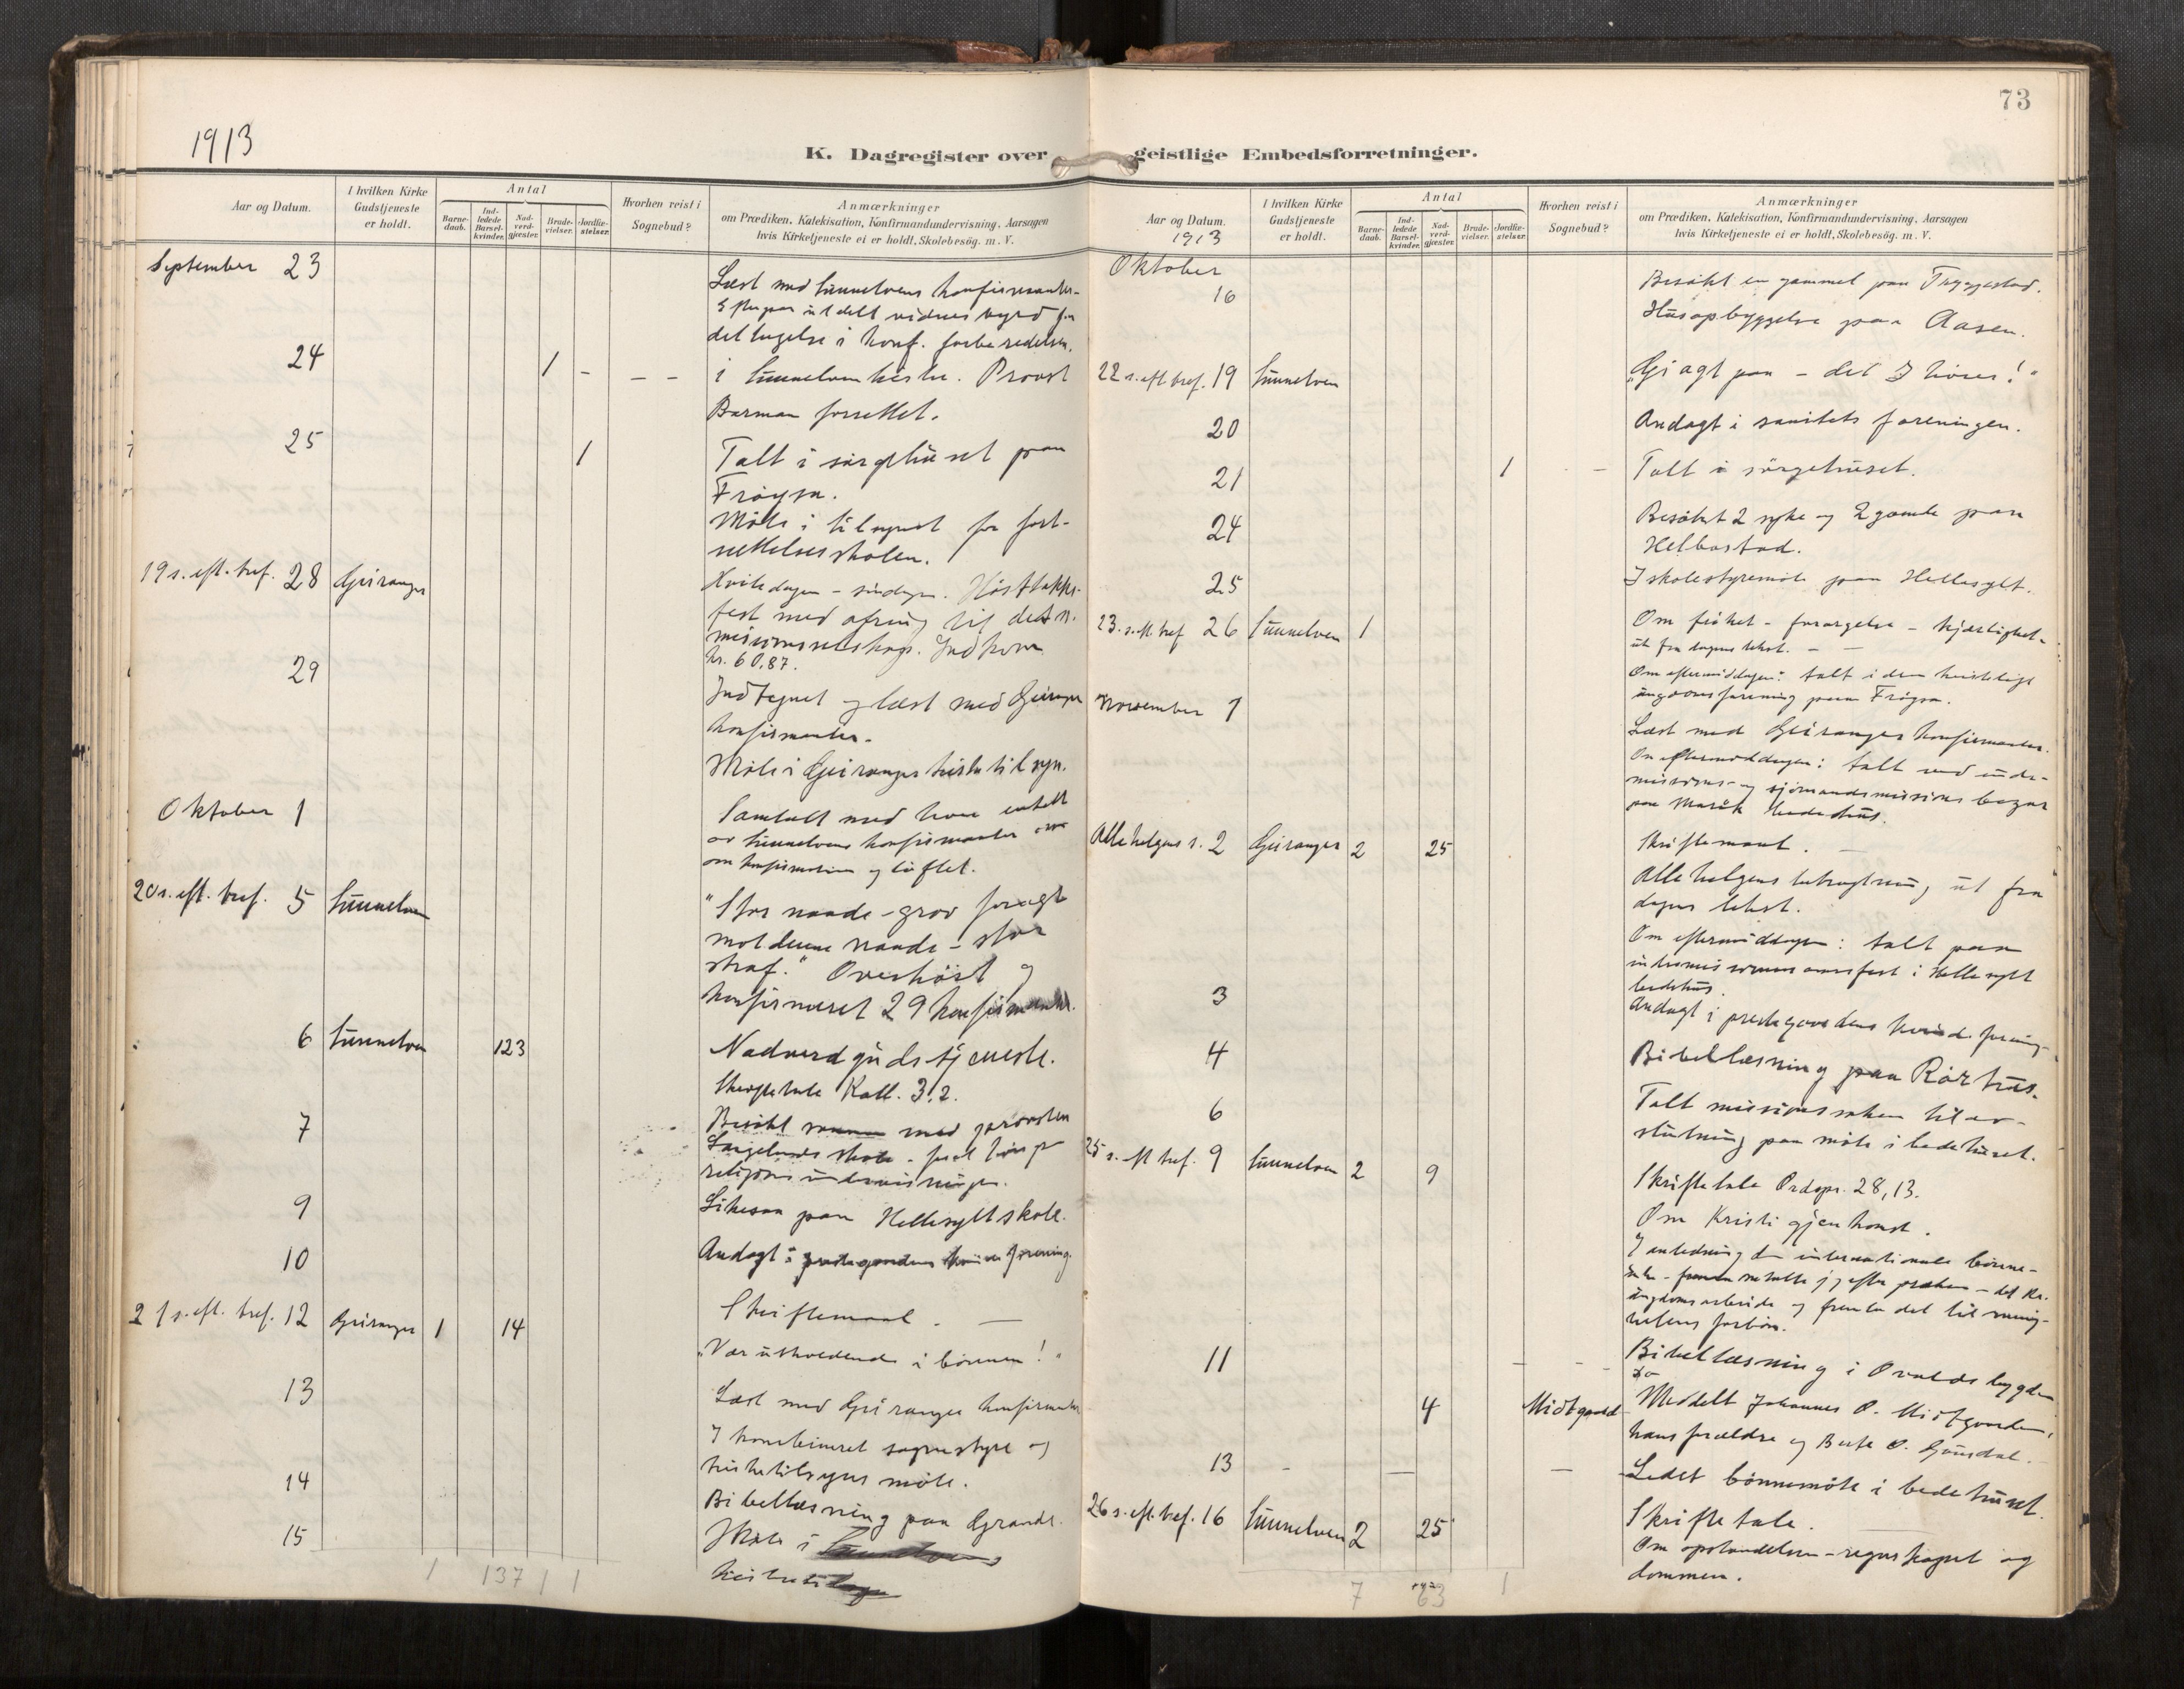 1913
73
K. Dagregister over geistlige Embedsforretninger.
Aar og Datum.
I hvilken Kirke Gudstjeneste er holdt.
Antal
Barne-daab.
Ind-ledede Barsel-kvinder.
Nad-verd-gjæster.
Brude-vielser.
Jordfæ-stelser.
Hvorhen reist i Sognebud?
Anmærkninger
om Prædiken, Katekisation, Konfirmandundervisning, Aarsagen
hvis Kirketjeneste ei er holdt, Skolebesög. m. V.
September 23
Læst med Sunnelvens konfirmanter.
utdelt vidnesbyrd for
deltagelse i konf. forberedelsen.
24 1 - - - i Sunnelven kirke. Provst
Barman forrettet.
25 1 Talt i sørgehuset paa
Frøysa.
Møte i tilsynet for fort-
sættelsesskolen.
19 s. eft. tref. 28 Geiranger
Hviledagen - søndagen. Høsttakke-
fest med ofring til det n.
missionsselskap. Indkom
kr. 60.87.
29
Indtegnet og læst med Geiranger
konfirmanter.
Møte i Geiranger kirketilsyn.
Oktober 1
Samtalt med hver enkelt
av Sunnelvens konfirmanter
om konfirmation og løftet.
20 s. eft. tref. 5 Sunnelven
"Stor naade - grov foragt
mot denne naade - stor
straf." Overhørt og
konfirmeret 29 konfirmanter.
6 Sunnelven 123
Nadverdgudstjeneste.
Skriftetale Kol. 3.2.
7
Besøkt med provsten
Langelands skole.
religionsundervisningen.
9
Likesaa paa Hellesylt skole.
10
Andagt i prestegaardens kvindeforening.
21 s. eft. tref. 12 Geiranger 1 14
Skriftemaal. -
"Vær utholdende i bønnen!"
13
Læst med Geiranger konfirmanter
I kombineret sognestyre og
kirketilsyns møte.
14
Bibellæsning paa Grande.
15
Møte i
1 137 1 1
Aar og Datum.
1913
I hvilken Kirke Gudstjeneste er holdt.
Antal
Barne-daab.
Ind-ledede Barsel-kvinder.
Nad-verd-gjæster.
Brude-vielser.
Jordfæ-stelser.
Hvorhen reist i Sognebud?
Anmærkninger
om Prædiken, Katekisation, Konfirmandundervisning, Aarsagen
hvis Kirketjeneste ei er holdt, Skolebesög. m. V.
Oktober
16
Besøkt en gammel paa Tryggestad.
Husopbyggelse paa Aasen.
22 s. eft. tref. 19 Sunnelven
"Gi agt paa - det I hører!"
20
Andagt i sanitetsforeningen.
21 1 - Talt i sørgehuset.
24
Besøkt 2 syke og 2 gamle paa
Helbostad.
25
I skolestyremøte paa Hellesylt.
23. s. eft tref 26 Sunnelven 1
Om fisket - forargelse - kjærlighet.
ut fra dagens tekst. -
Om eftermiddagen: talt i den kristelige
ungdomsforening paa Frøysa.
November 1
Læst med Geiranger konfirmanter.
Om eftermiddagen: talt ved indre-
missions- og sjømandsmissions bazar
paa Maråk bedehus.
Allehelgens s. 2 Geiranger 2 25
Skriftemaal. -
Allehelgens betragtning ut fra
dagens tekst.
Om eftermiddagen: talt paa
indremissionens aarsfest i Hellesylt
bedehus.
3
Andagt i prestegaardens kvindeforening
4
Bibellæsning paa Rørhus.
6
Talt missionssaken til av-
slutning paa møte i bedehuset.
25 s. eft tref. 9 Sunnelven 2 9
Skriftetale Ordspr. 28,13.
Om Kristi gjenkomst.
I anledning den internationale bønne-
uke - det kr.
ungdomsarbeide og det til menig-
hetens forbøn.
11 - - -
Bibellæsning i Ovaldsbygden
4 Midtgaard
Meddelt Johannes O. Midtgaarden,
hans forældre og Berte O. Gjøsdal.
13 - - -
Ledet bønnemøte i bedehuset.
26 s. eft. tref. 16 Sunnelven 2 25
Skriftetale.
Om opstandelsen - regnskapet og
dommen.
7 63 1